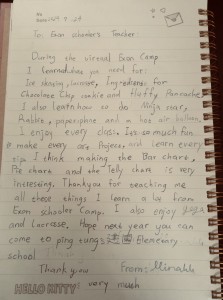 To: Exon scheeters's Teacher
During the virtual Exon Camp
I learned about you need for:
Ice skating, lacrosse, Ingredients for
Chocolate Chip cookie and fluffy Pancake
I also learn how to do Ninja star,
Rabbit, paper plane and a hot air balloon
I enjoy every class. It's so much fun
make every art Project and learn every
I think making the Bar chart,
Pie chart and the Telly chart is very
Interesting. Thank you for teaching me
all these things I learn a lot from
Exon scholes Camp. I also enjoy yoga
and Lacrosse. Hope next year you can
come to ping tung Elementry
school
Thank you From: Minahh
very much
HELLO KITTY